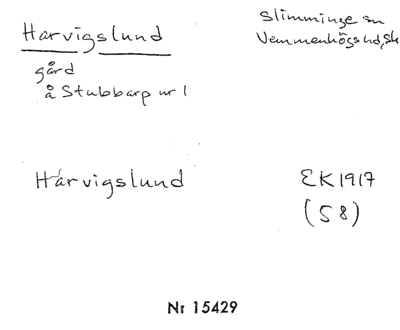 Harvigslund
gård
å Stubbarp nr 1
Slimminge sn
Vemmenhögs hd, Sk
Hárvigslund
EK 1917
(58)
Nr 15429